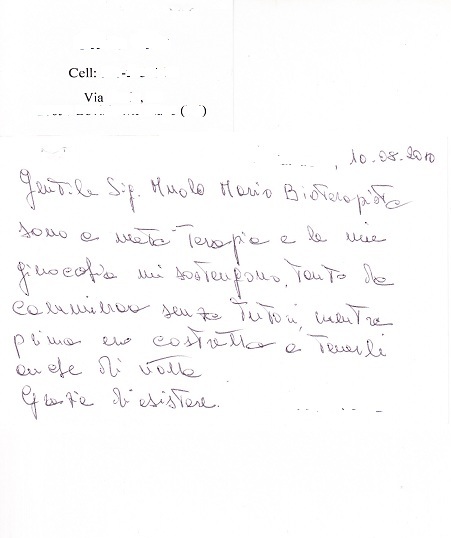 Cell:
Via ,
( )
, 10.08.2010
Gentile Sig. Muolo Mario Bioterapista
sono a metà Terapia e le mie
ginocchia mi sostengono, tanto da
camminare senza Tutori, mentre
prima ero costretta a Tenerli
anche di notte
Grazie di esistere.